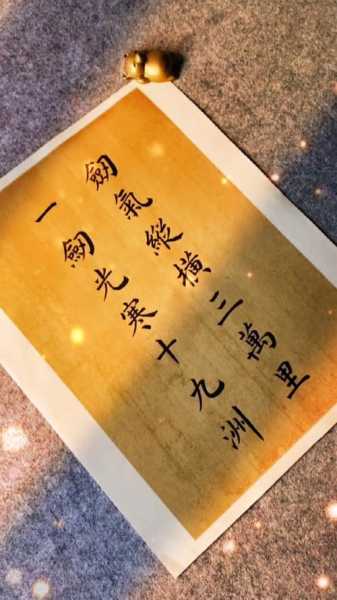 劍氣縱橫三萬里
一劍光寒十九洲